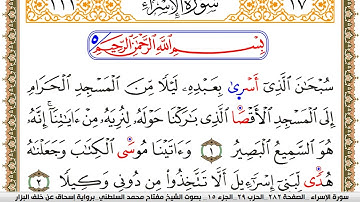 ١٧ سورة الإسراء ١١١
بِسْمِ اللَّهِ الرَّحْمَٰنِ الرَّحِيمِ
سُبْحَٰنَ الَّذِىٓ أَسْرَىٰ بِعَبْدِهِۦ لَيْلًا مِّنَ الْمَسْجِدِ الْحَرَامِ
إِلَى الْمَسْجِدِ الْأَقْصَا الَّذِى بَٰرَكْنَا حَوْلَهُۥ لِنُرِيَهُۥ مِنْ ءَايَٰتِنَآ إِنَّهُۥ
هُوَ السَّمِيعُ الْبَصِيرُ ١ وَءَاتَيْنَا مُوسَى الْكِتَٰبَ وَجَعَلْنَٰهُ
هُدًى لِّبَنِىٓ إِسْرَٰٓءِيلَ أَلَّا تَتَّخِذُوا۟ مِن دُونِى وَكِيلًا ٢
سورة الإسراء . الصفحة ٢٨٢ . الحزب ٢٩ . الجزء ١٥ . بصوت الشيخ مفتاح محمد السلطني . برواية إسحاق عن خلف البزار